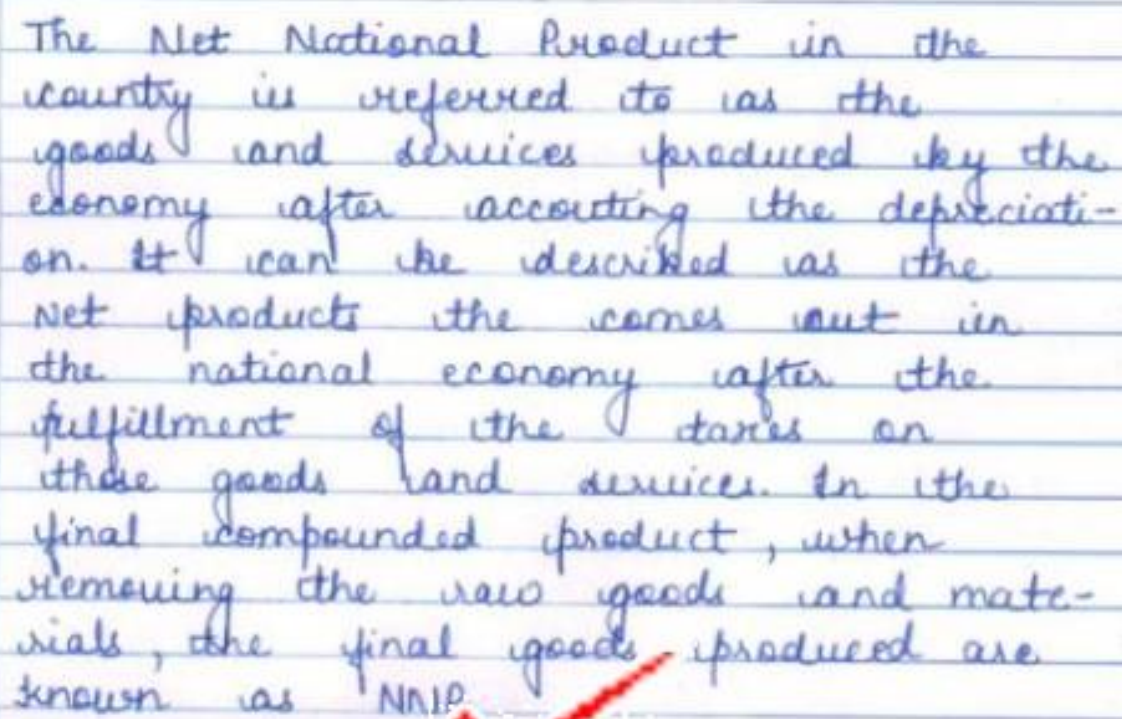 The Net National Product in the
country is referred to as the
goods and services produced by the
economy after accouting the depreciati-
on. It can be described as the
Net products the comes out in
the national economy after the
fulfillment of the taxes on
those goods and services. In the
final compounded product, when
removing the raw goods and mate-
rials, the final goods produced are
known as NNP